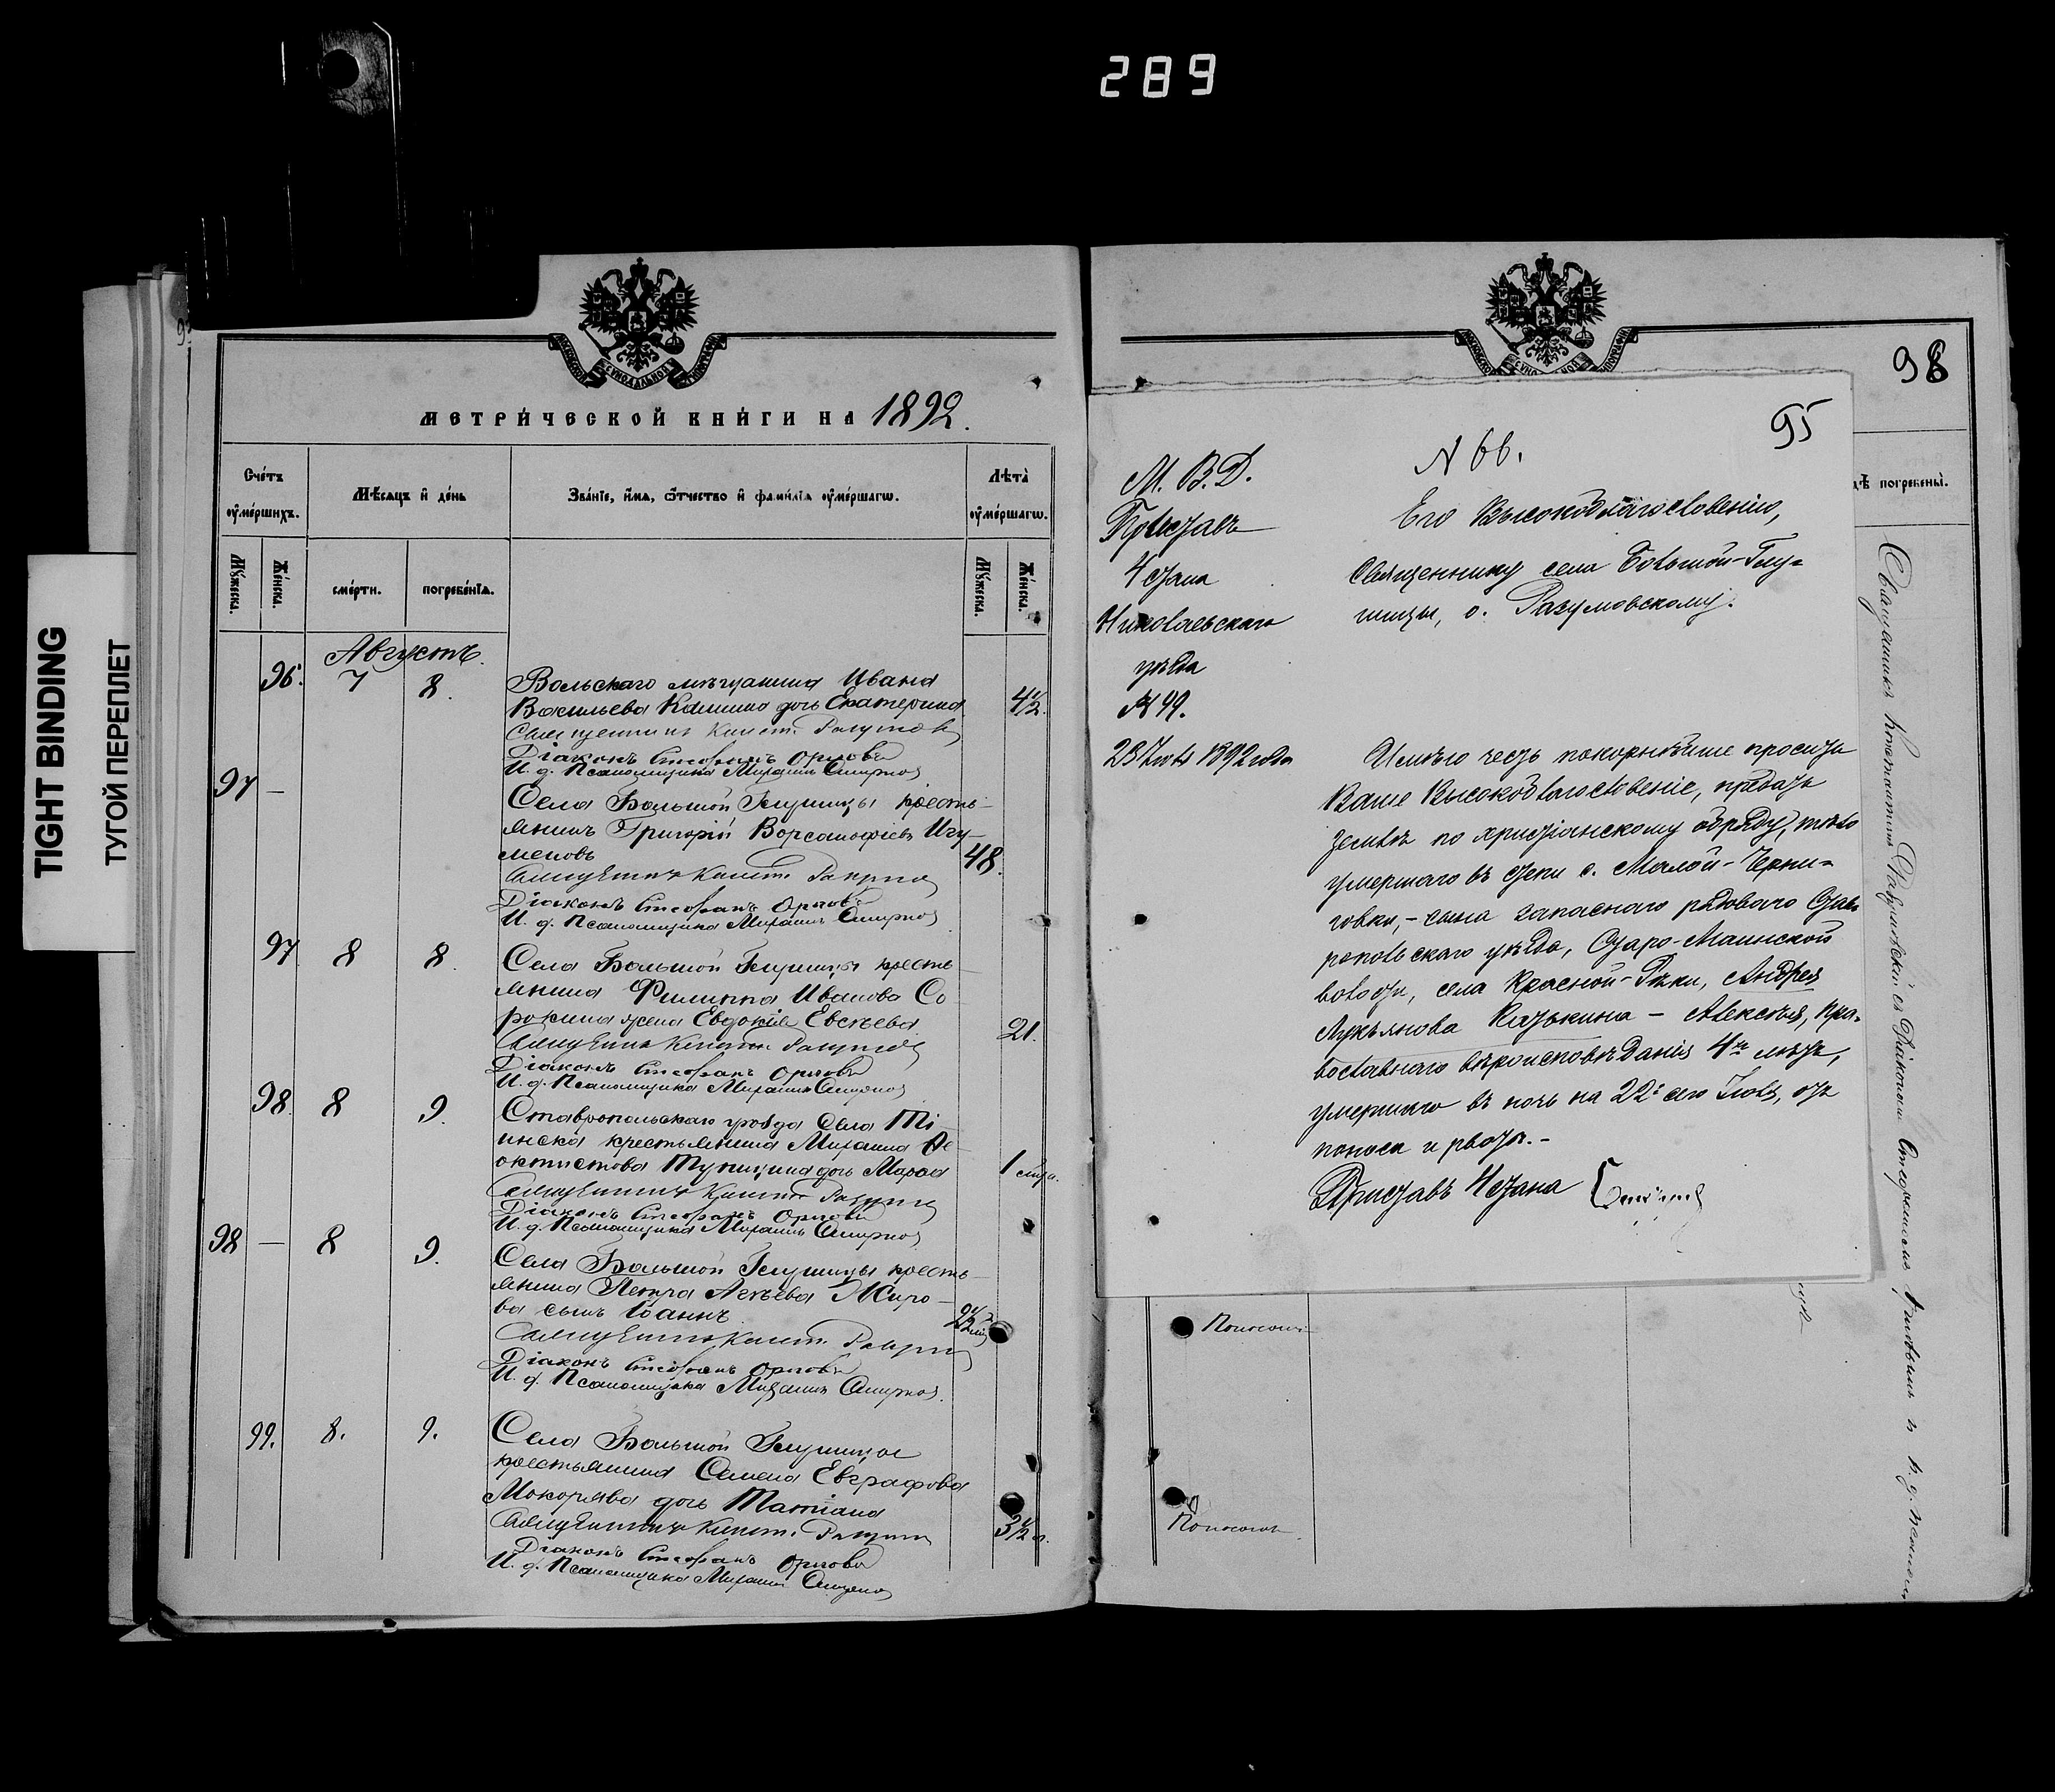 289
TIGHT BINDING
ТУГОЙ ПЕРЕПЛЕТ
МЕТРИ́ЧЕСКОЙ КНИ́ГИ НА 1892.
Сче́тъ ᲂу҆ме́ршихъ.
Мѣ́сяцъ и҆ де́нь
Зва́нїе, и҆́мѧ, ѻ҆́тчество и҆ фами́лїѧ ᲂу҆ме́ршагѡ.
Лѣта̀ ᲂу҆ме́ршагѡ.
Мꙋ́жеска.
Же́нска.
сме́рти.
погребе́нїѧ.
Мꙋ́жеска.
Же́нска.
Августъ.
96. 7 8. Вольскаго мѣщанина Ивана
Васильева Калинина дочь Екатерина 4½.
Священникъ Конст. Разумов
Діаконъ Стефанъ Орловъ
И. д. Псаломщика Михаилъ Смирнов
97 — Села Большой Глушицы кресть-
янинъ Григорій Ворсанофіевъ Игу-
меновъ 48.
Священникъ Конст. Разумов
Діаконъ Стефанъ Орловъ
И. д. Псаломщика Михаилъ Смирнов
97 8 8. Села Большой Глушицы кресть-
янина Филиппа Иванова Со-
рокина жена Евдокія Евсѣева 21.
Священникъ Констан Разумов
Діаконъ Стефанъ Орловъ
И. д. Псаломщика Михаилъ Смирнов
98. 8 9. Ставропольскаго уѣзда Села Ті-
инска крестьянина Михаила Ѳе-
октистова Тупицина дочь Марѳа 1
Священникъ Конст Разумов
Діаконъ Стефанъ Орловъ
И. д. Псаломщика Михаилъ Смирнов
98 — 8 9. Села Большой Глушицы кресть-
янина Петра Агѣева Жиро-
ва сынъ Іоаннъ
Священникъ Конст. Разум
Діаконъ Стефанъ Орловъ
И. д. Псаломщика Михаилъ Смирнов.
99. 8. 9. Села Большой Глушицы
крестьянина Семена Евграфова
Мокорлева дочь Татіана
Священникъ Конст. Разумов 3½
Діаконъ Стефанъ Орловъ
И. д. Псаломщика Михаилъ Смирнов
98
погребены̀.
95
N 66.
М. В. Д.
Приставъ
4 стана
Николаевскаго
уѣзда
№ 99.
23 Іюля 1892 года
Его Высокоблагословенію,
Священнику села Большой-Глу-
шицы, о. Разумовскому.
Имѣю честь покорнѣйше просить
Ваше Высокоблагословеніе, предать
землѣ по христіанскому обряду, тѣло
умершаго въ степи с. Малой-Черни-
говки, – сына запаснаго рядоваго Став-
ропольскаго уѣзда, Старо-Маинской
волости, села Красной-Рѣки, Андрея
Лукьянова Казькина – Алексѣя, пра-
вославнаго вѣроисповѣданія 4хъ лѣтъ,
умершаго въ ночь на 22е сего Іюля, отъ
поноса и рвоты. –
Приставъ 4 стана
Поносомъ
Поносомъ
Священникъ Константинъ Разумовскій съ Діакономъ Стефаномъ Орловымъ и и. д. псаломщ